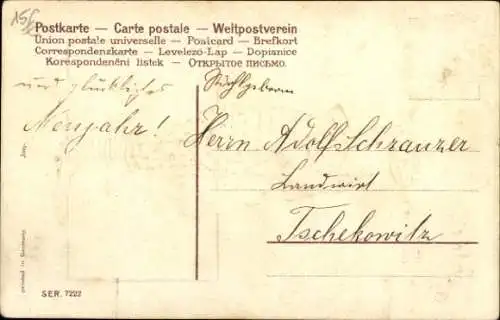 15f
Postkarte — Carte postale — Weltpostverein
Union postale universelle — Postcard — Brefkort
Correspondenzkarte — Levelező-Lap — Dopisnice
Korespondenční listek — Открытое письмо.
und glückliches
Neujahr!
Wohlgeborn
Herrn Adolf Schranzer
Landwirt
Tschekowitz
printed in Germany.
SER. 7222